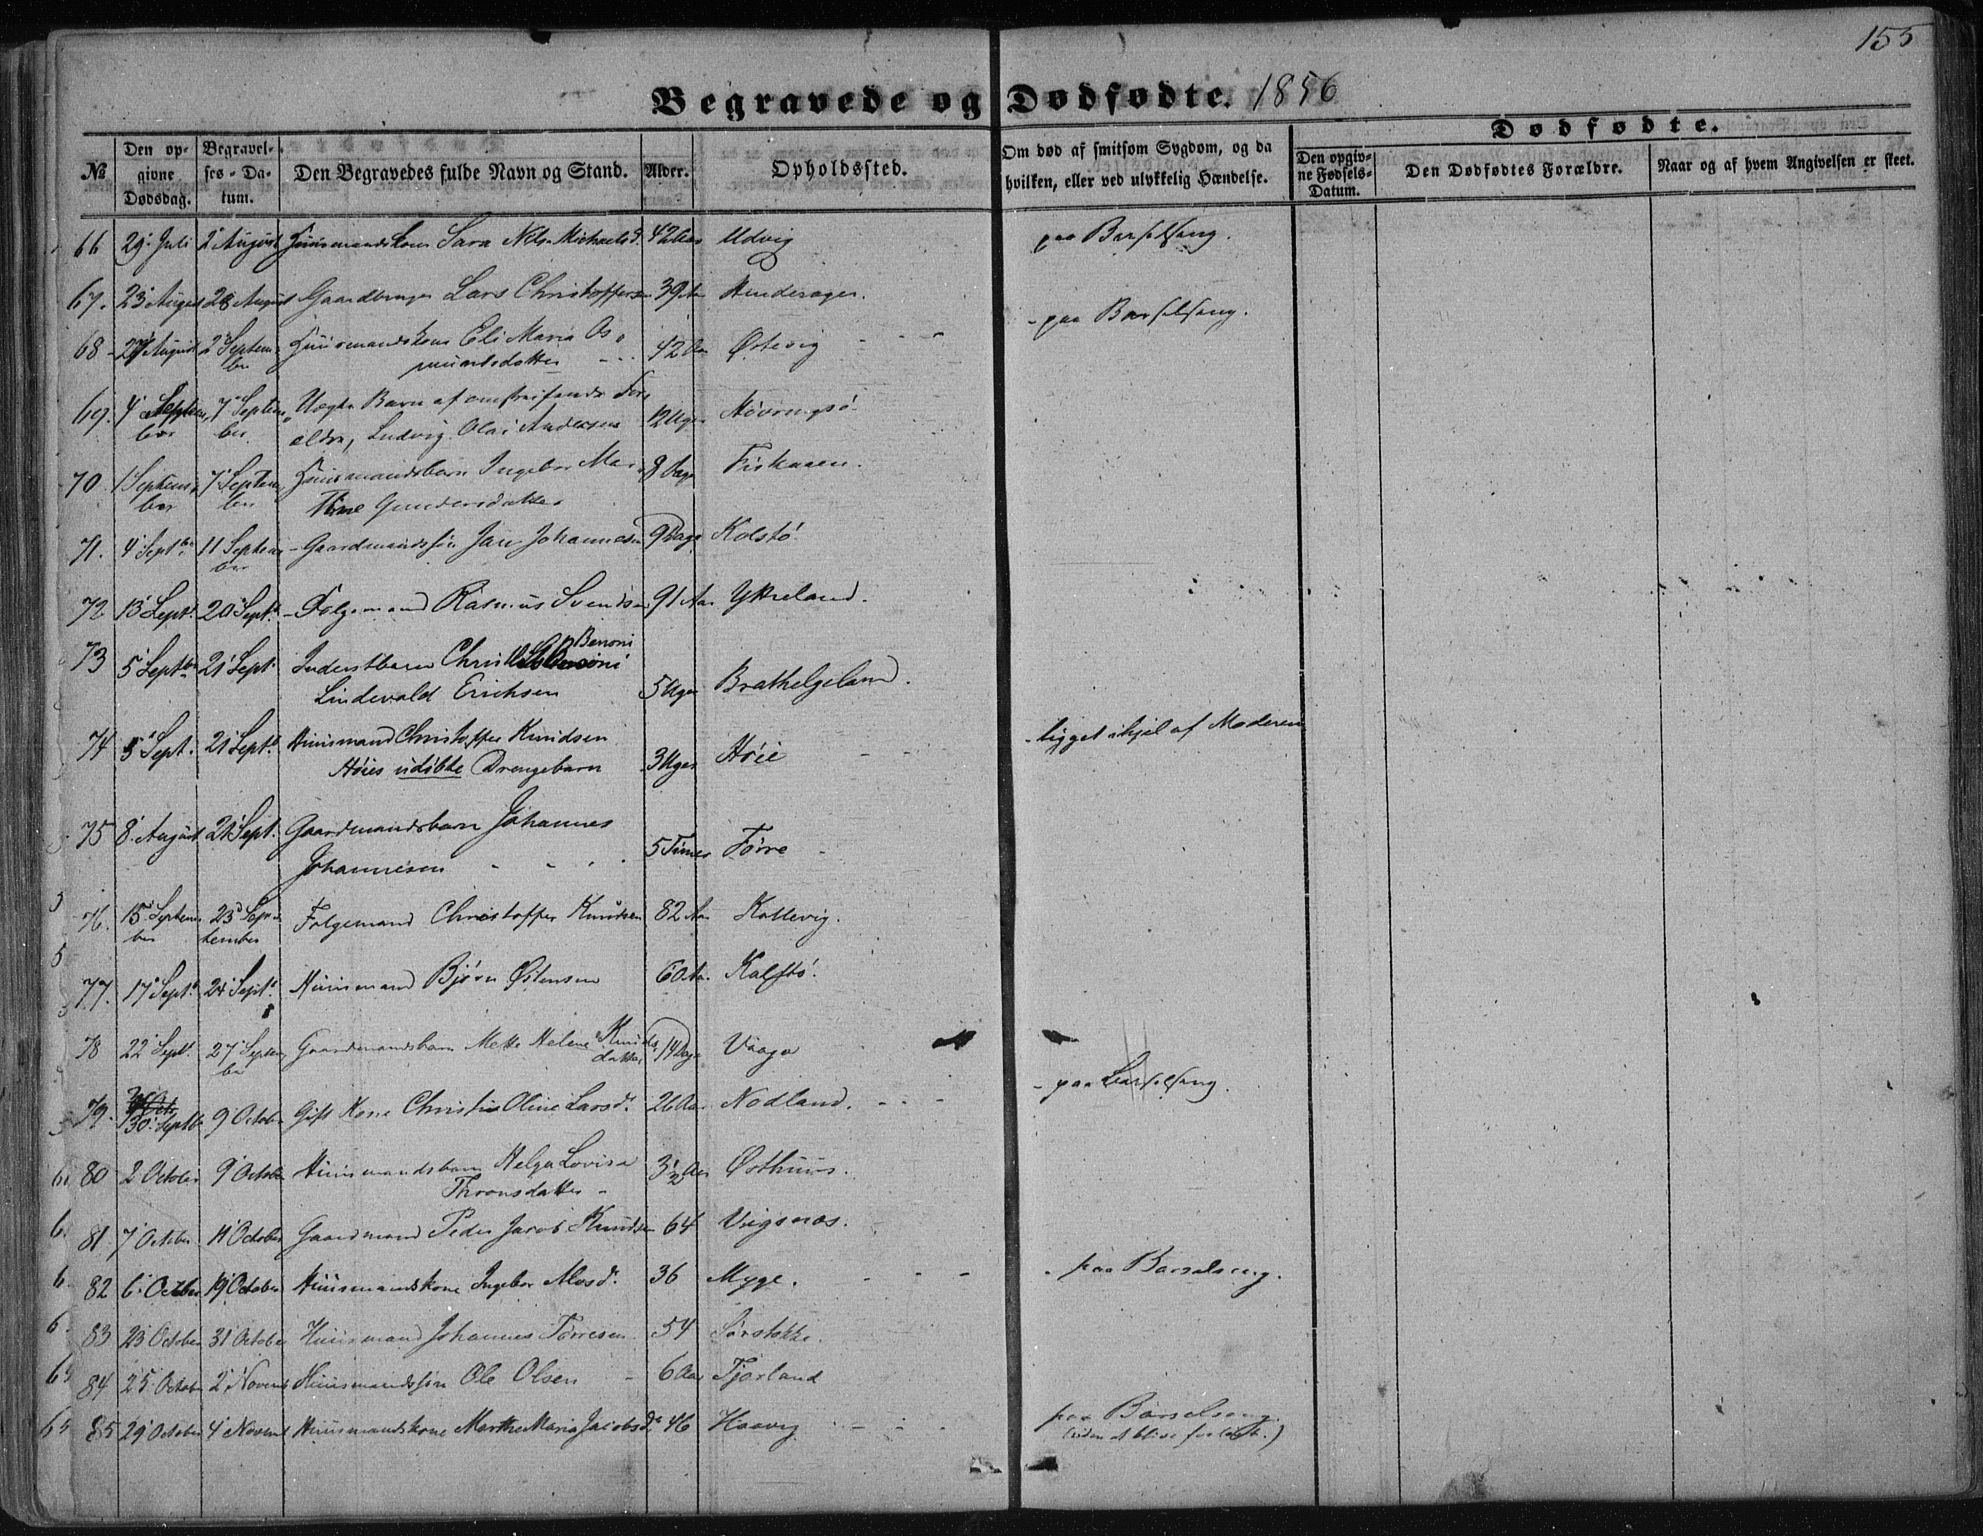 155
Begravede og Dødfødte. 1856
Dødfødte.
№
Den opgivne Dødsdag.
Begravelses-Datum.
Den Begravedes fulde Navn og Stand.
Alder.
Opholdssted.
Om død af smitsom Sygdom, og da hvilken, eller ved ulykkelig Hændelse.
Den opgivne Fødsels-Datum.
Den Dødfødtes Forældre.
Naar og af hvem Angivelsen er skeet.
66 29 Juli 2 August Huusmandskone Sara Nils Michaelsd. 42 Aar Udvig paa Barselseng.
67. 23 August 28 August Gaardbruger Lars Christoffersen 39 Aar
68 27 August 2 Septem Huusmandskone Eli Maria As 42 Aar Østevig - - - paa Barselseng.
ber mundsdatter
69. 4 Septem 7 Septem Uægte Barn af omstreifende For 12 Uger
ber ber ældre, Ludvig Olai Andersen
70 1 Septem 7 Septem Huusmandsbarn Ingebor Mar 8 Dage Fiskaaen.
ber ber Thine Gundersdatter
71. 4 Septbr. 11 Septem Gaardmandssøn Jan Johannesen 9 Dage Kolstø.
ber
72 13 Septr. 20 Septr. Folgemand Rasmus Svendsen 91 Aar Yttreland.
Benoni
73 5 Septbr 21 Sept Inderstbarn Christ
Lindevald Erichsen 5 Uger Brathelgeland.
74 5 Sept. 21 Septr. Huusmand Christoffer Knudsen ligget ihjel af Moderen
Høies udøbte Drengebarn 3 Uger Høie - - -
75 8 August 21 Sept. Gaardmandsbarn Johannes
Johannesen 5 Timer Førre
76. 15 Septem 23 Sep Folgemand Christoffer Knudsen 82 Aar Kallevig.
ber tember
77. 17 Septr 24 Septr. Huusmand Bjørn Østensen 60 Aar Kalstø.
78 22 Septr. 27 Septem Gaardmandsbarn Mette Helene Knuds 14 Dage Vaage
ber datter
79. 30 Septbr 9 October Gift Kone Christie Oline Larsdr. 26 Aar Nodland. - - - paa Barselseng.
80 2 October 9 October Huusmandsbarn Helga Lovisa 3½ Aar Østhuus.
Thronsdatter
81 7 October 11 October Gaardmand Peder Jacob Knudsen 64 Viigsnæs.
82 6 October 19 October Huusmandskone Ingebor Alvsdr. 36 Myge. - - - paa Barselseng.
83 23 October 31 October Huusmand Johannes Tørresen 54 Sørstokke.
84 25 October 2 Novemb Huusmandssøn Ole Olsen - 6 Aar Fjorland
85 29 October 4 Novemb Huusmandskone Marthe Maria Jacobsdr. 46 Haavig - - - paa Barselseng
(uden at blive forløst.)